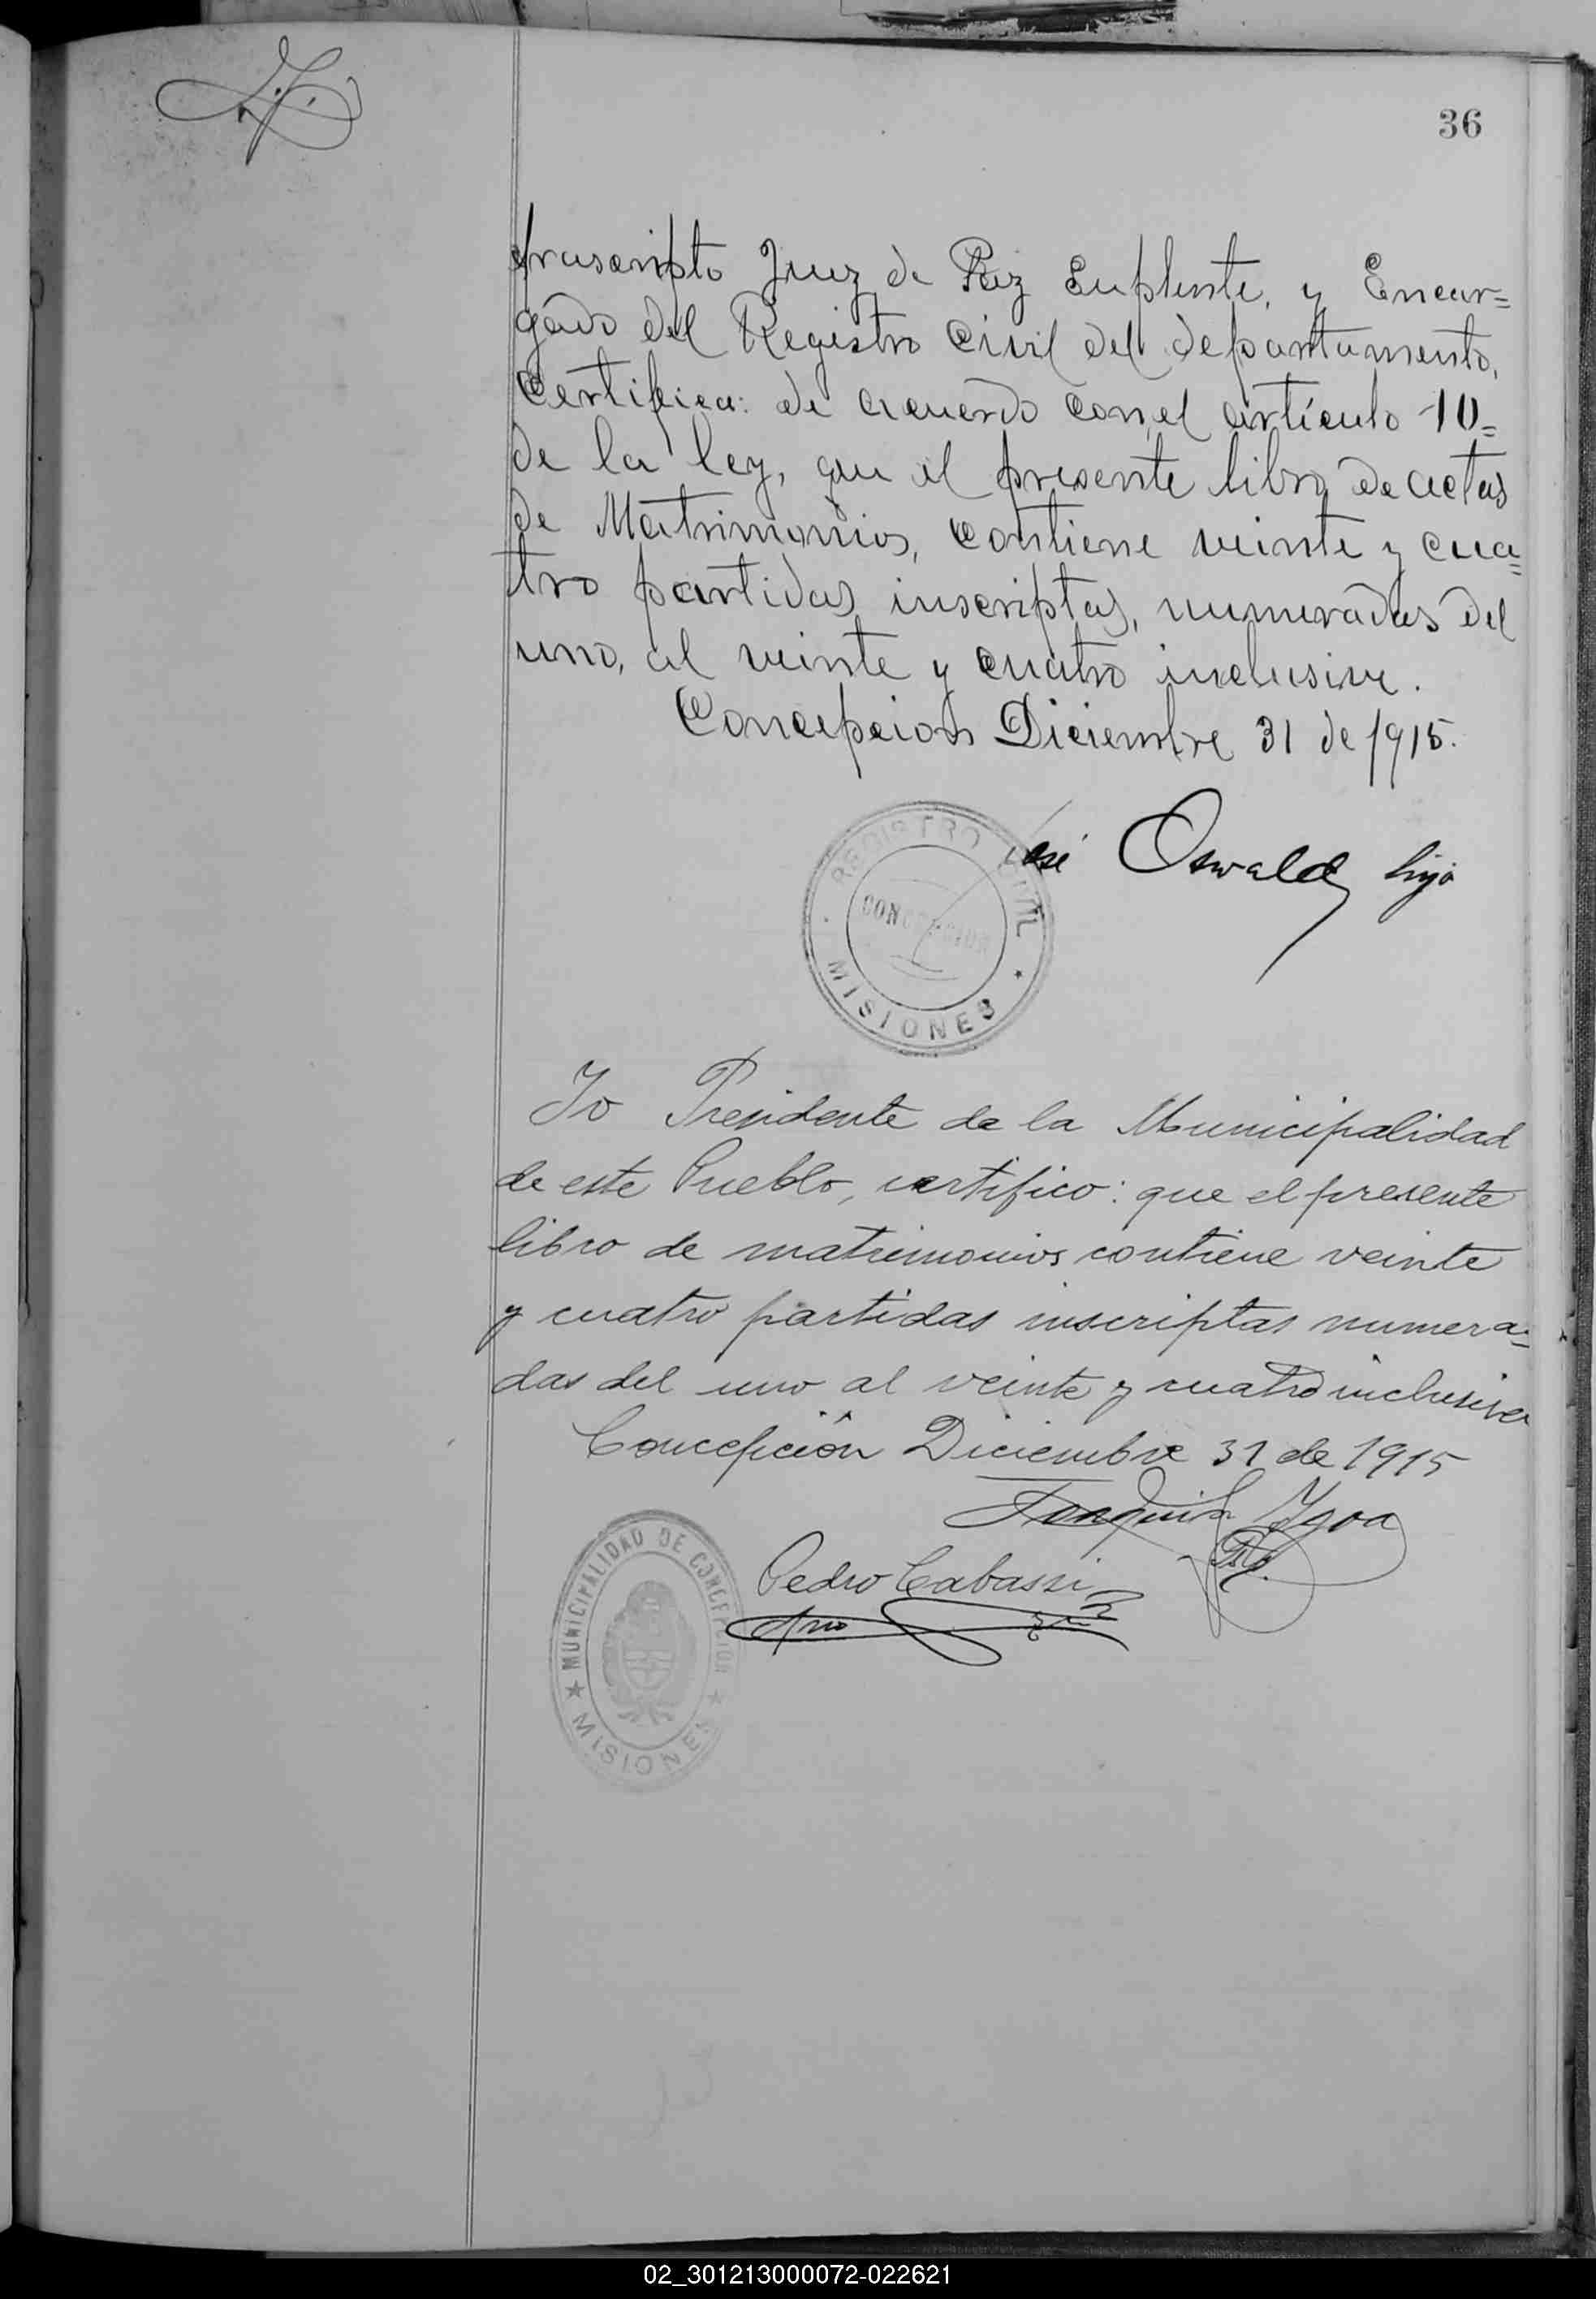 36
Frascripto Juez de Paz Suplente, y Encar=
gado del Registro Civil del departamento,
Certifica: de acuerdo con el artículo 10=
de la ley, que el presente libro de actas
de Matrimonios, contiene veinte y cua=
tro partidas inscriptas, numeradas del
uno, al veinte y cuatro inclusive.
Concepcion Diciembre 31 de 1915.
José Oswald hijo
REGISTRO CIVIL
CONCEPCION
MISIONES
Yo Presidente de la Municipalidad
de este Pueblo, certifico: que el presente
libro de matrimonios contiene veinte
y cuatro partidas inscriptas numera=
das del uno al veinte y cuatro inclusive
Concepción Diciembre 31 de 1915
Joaquin Ygoa
Pedro Cabassi
Srio
MUNICIPALIDAD DE CONCEPCION
MISIONES
02_301213000072-022621